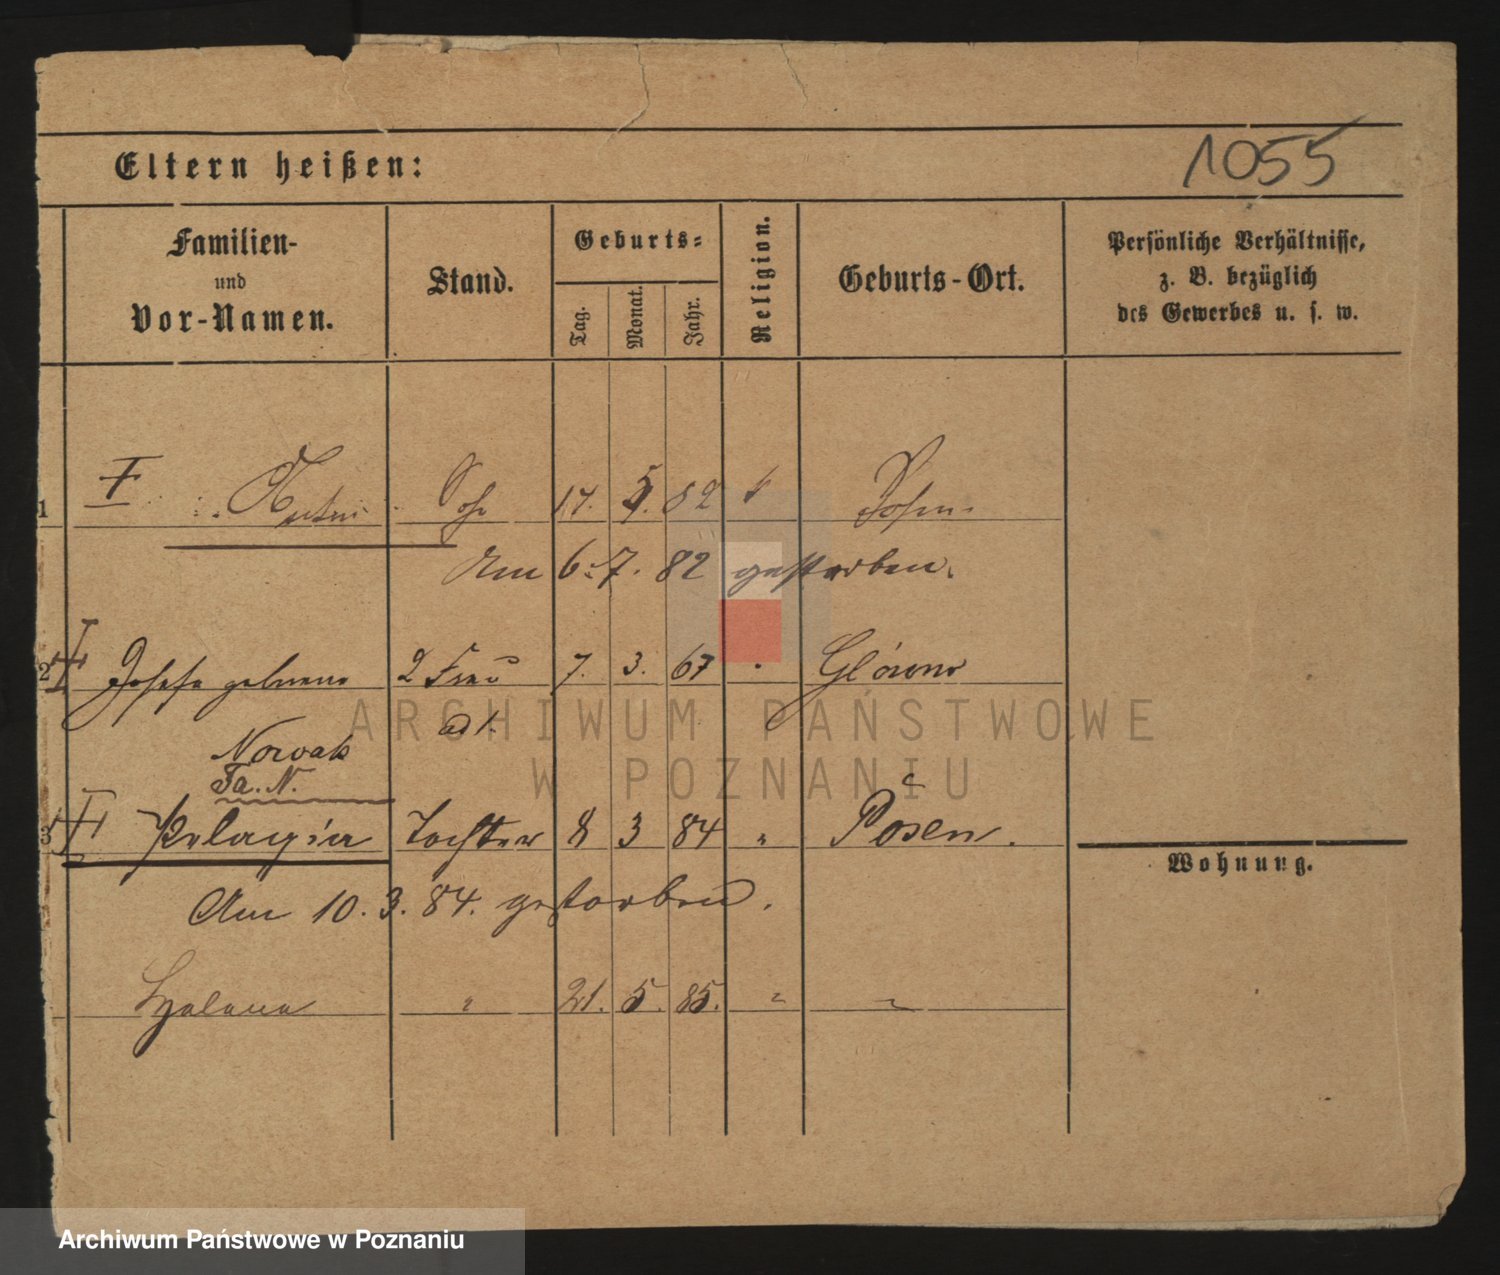 1055
Eltern heißen:
Familien-
und
Vor-Namen.
Stand.
Geburts-
Tag. Monat. Jahr.
Religion.
Geburts-Ort.
Persönliche Verhältnisse,
z. B. bezüglich
des Gewerbes u. s. w.
1 Sohn 17. 5. 82 Posen.
Am 6. 7. 82 gestorben.
2 Josefa geborene 2 Frau 7. 3. 67 " Glówno
Nowak ad 1.
Fa. N.
3 Pelagia Tochter 8 3 84 " Posen.
Am 10. 3. 84. gestorben.
Helena " 21. 5. 85. " "
Wohnung.
ARCHIWUM PAŃSTWOWE
W POZNANIU
Archiwum Państwowe w Poznaniu